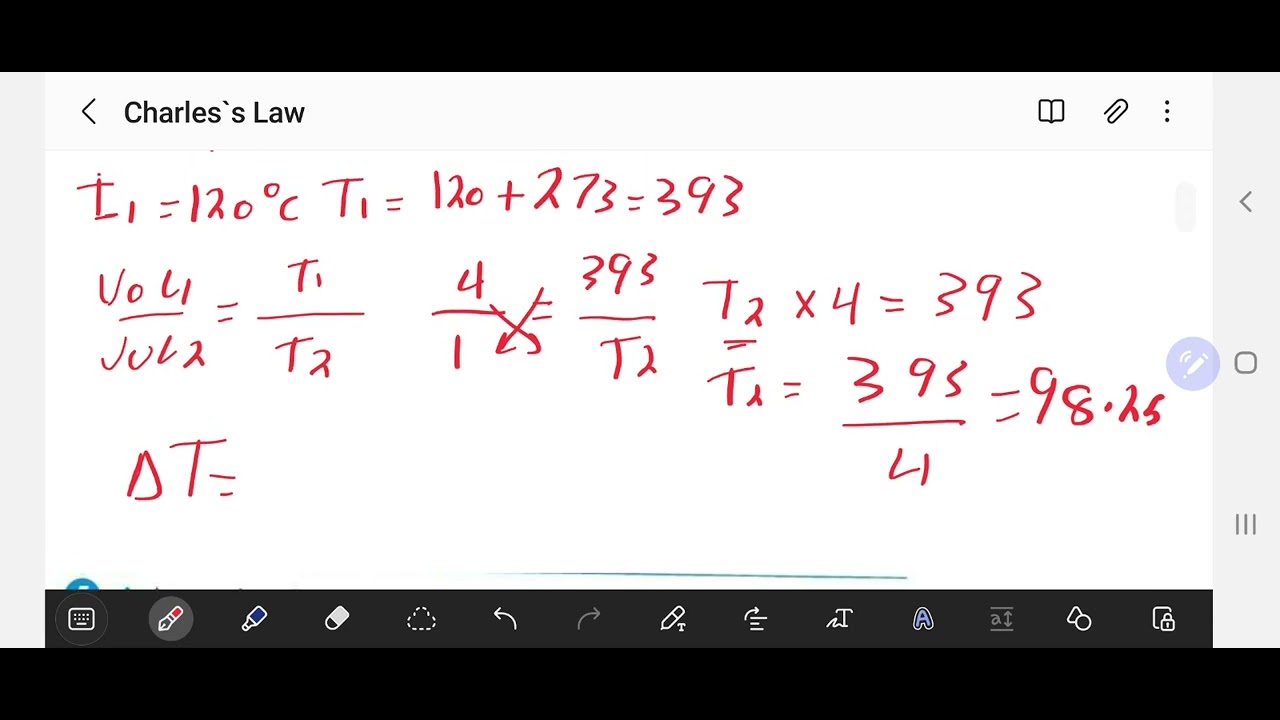 Charles`s Law
t1 = 120°C T1 = 120 + 273 = 393
Vol1 / Vol2 = T1 / T2 4 / 1 = 393 / T2 T2 × 4 = 393
T2 = 393 / 4 = 98.25
ΔT =